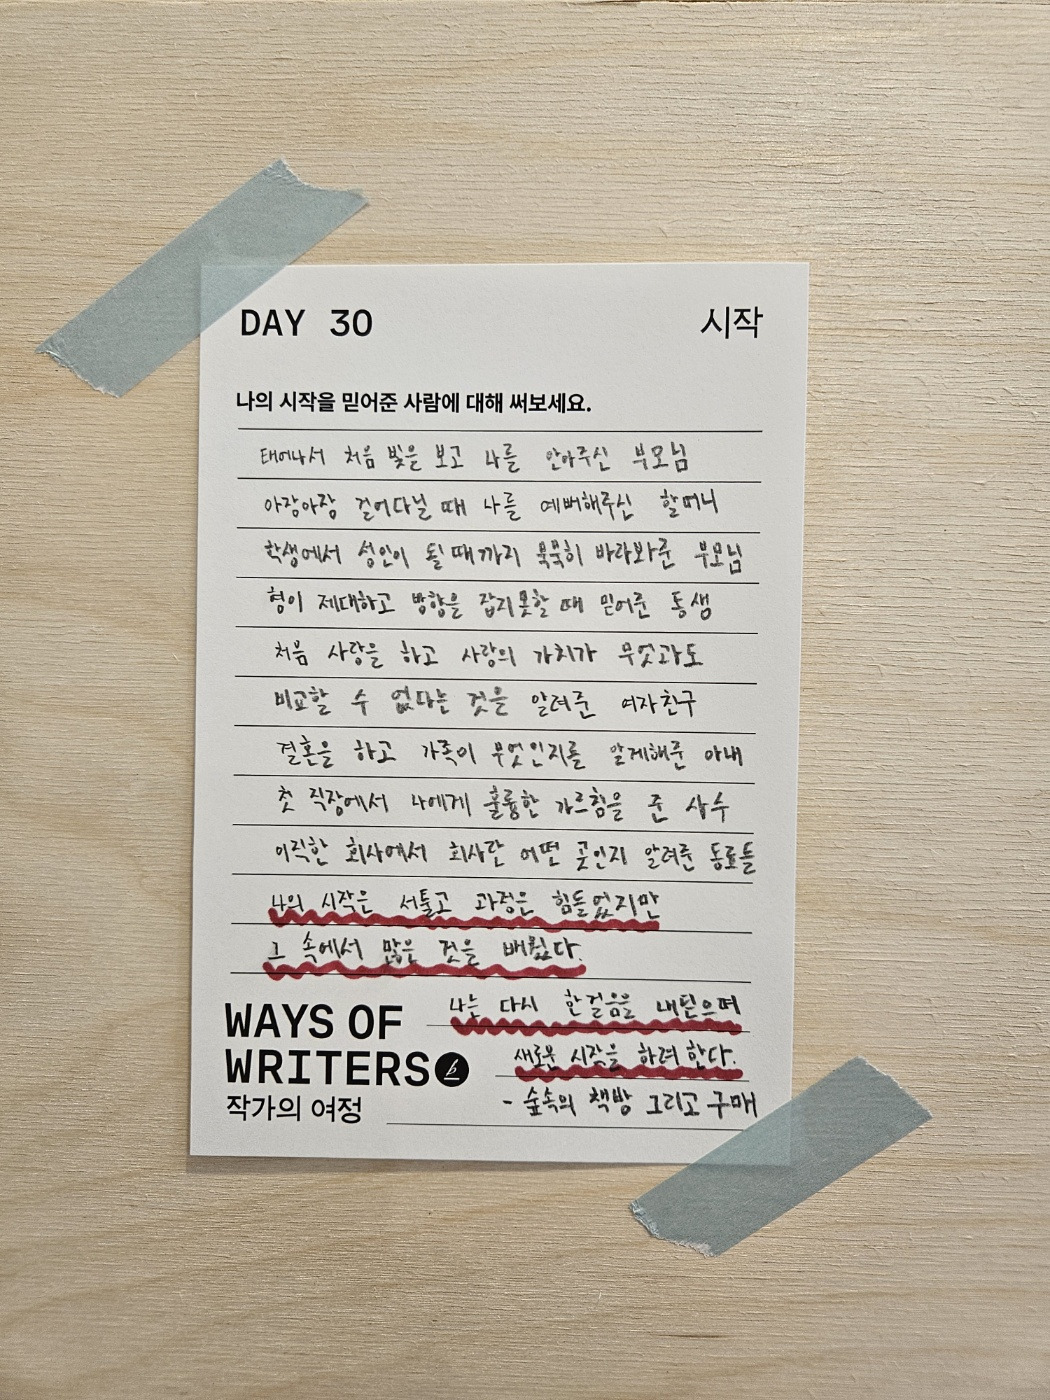 DAY 30
시작
나의 시작을 믿어준 사람에 대해 써보세요.
태어나서 처음 빛을 보고 나를 안아주신 부모님
아장아장 걸어다닐 때 나를 예뻐해주신 할머니
학생에서 성인이 될 때까지 묵묵히 바라봐준 부모님
형이 제대하고 방향을 잡지못할 때 믿어준 동생
처음 사랑을 하고 사랑의 가치가 무엇과도
비교할 수 없다는 것을 알려준 여자친구
결혼을 하고 가족이 무엇인지를 알게해준 아내
첫 직장에서 나에게 훌륭한 가르침을 준 사수
이직한 회사에서 회사란 어떤 곳인지 알려준 동료들
나의 시작은 서툴고 과정은 힘들었지만
그 속에서 많은 것을 배웠다.
나는 다시 한걸음을 내딛으며
새로운 시작을 하려 한다.
- 숲속의 책방 그리고 구매
WAYS OF
WRITERS
작가의 여정